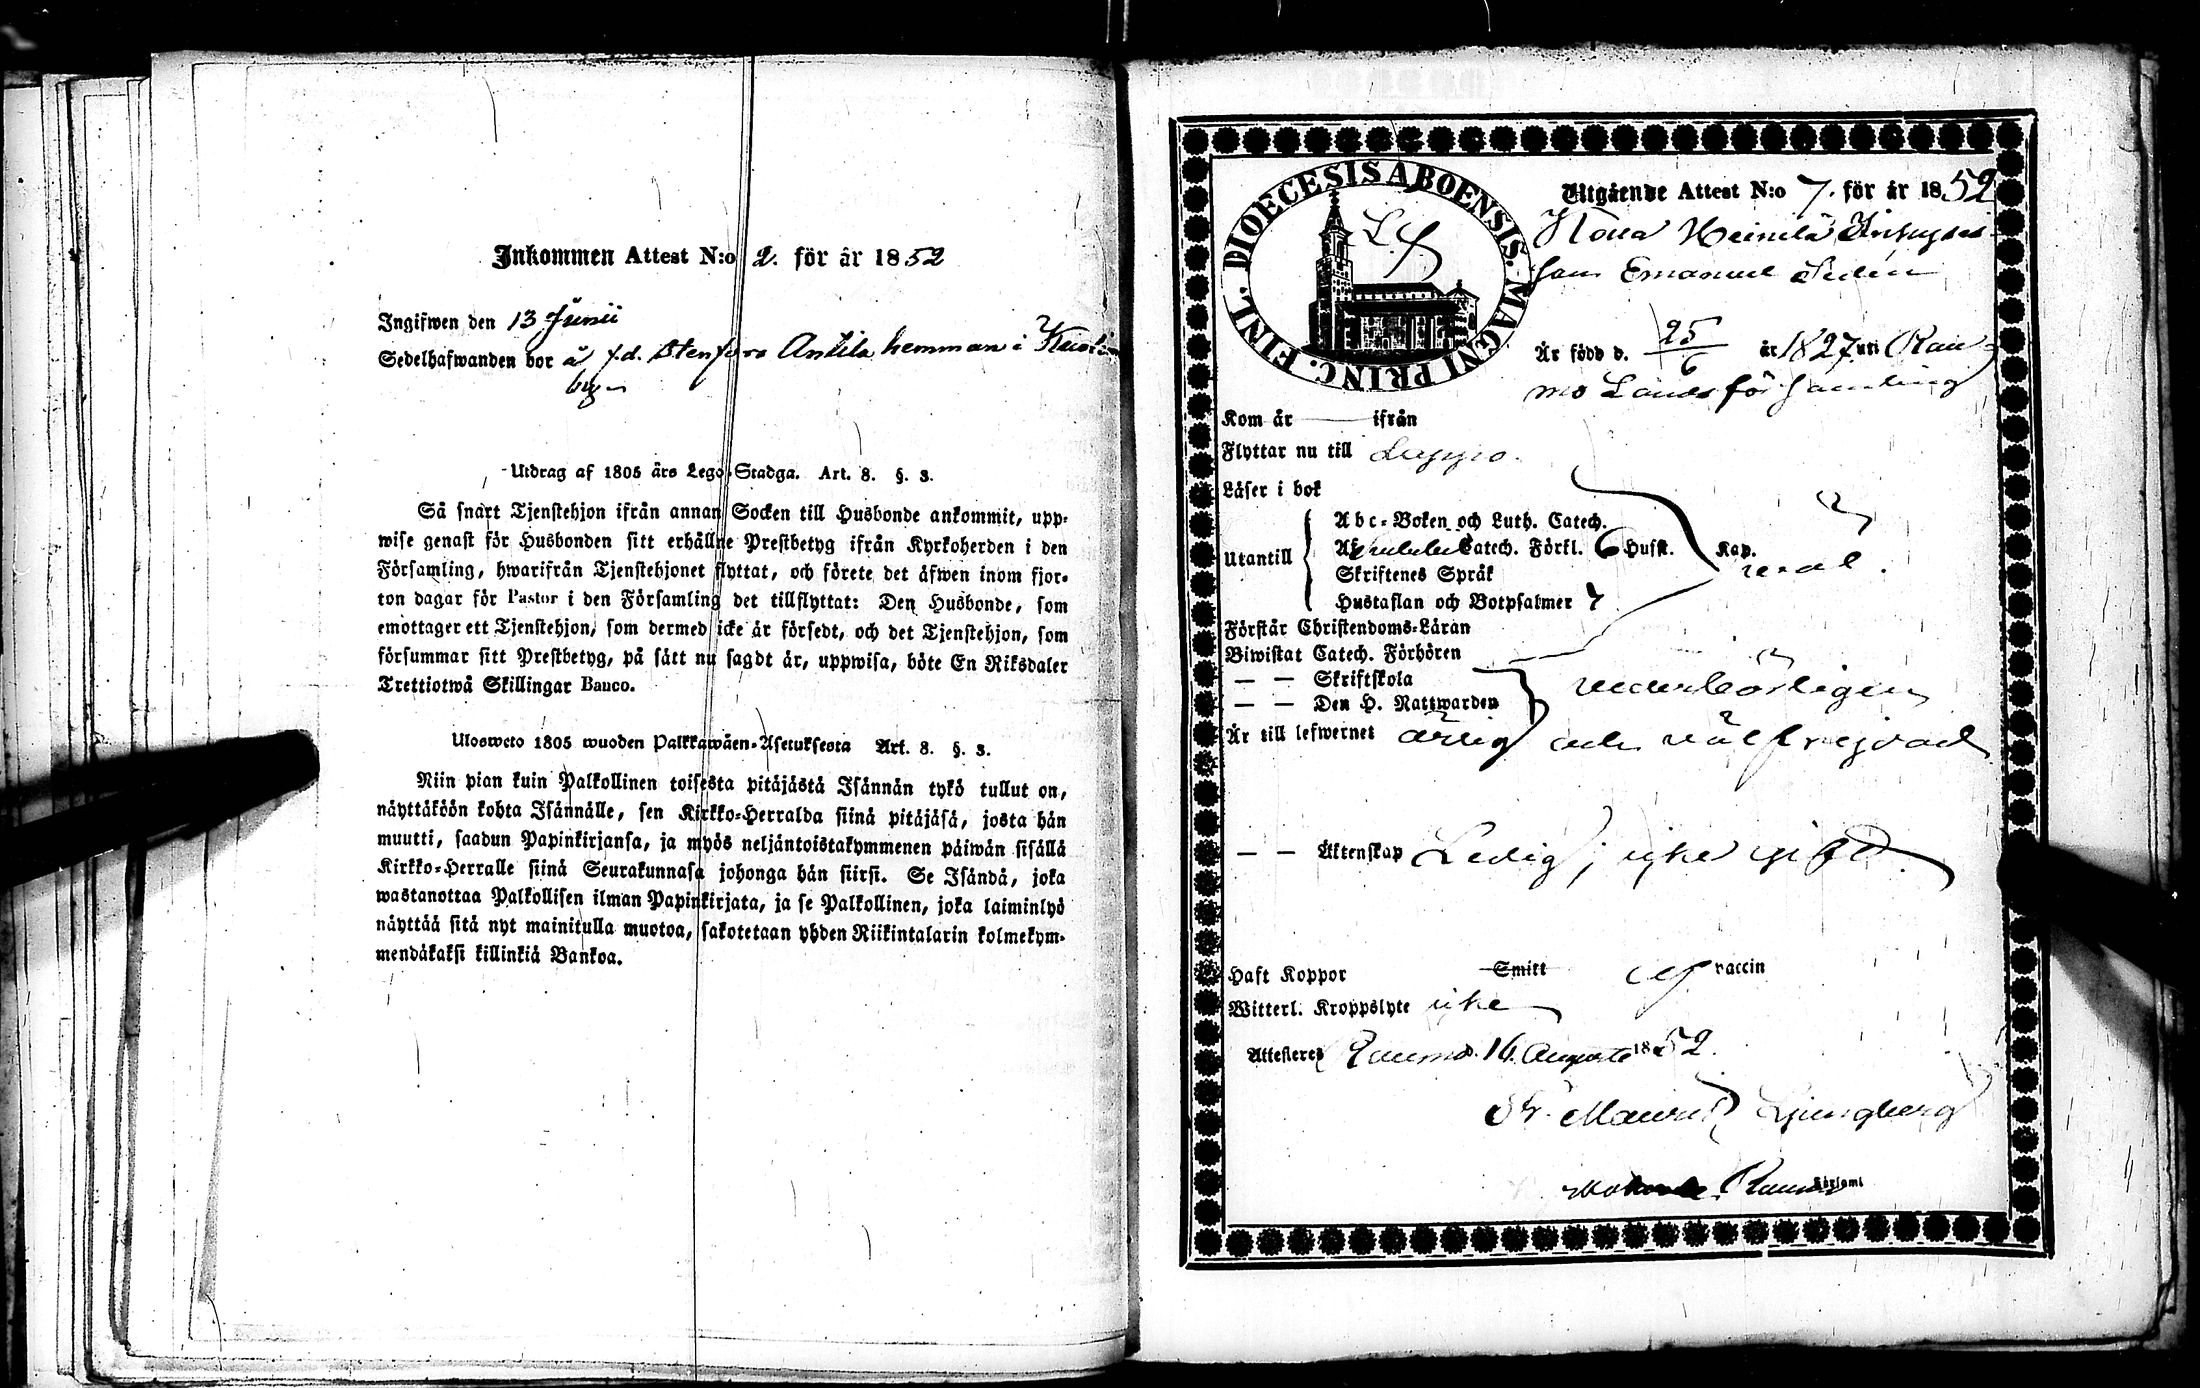 Inkommen Attest N:o 2. för år 1852
Ingifwen den 13 Junii
Sedelhafwanden bor å f.d. Stenfors Anttila hemman i
byn
Utdrag af 1805 års Lego-Stadga. Art. 8. §. 3.
Så snart Tjenstehjon ifrån annan Socken till Husbonde ankommit, upp-
wise genast för Husbonden sitt erhållne Prestbetyg ifrån Kyrkoherden i den
Församling, hwarifrån Tjenstehjonet flyttat, och förete det äfwen inom fjor-
ton dagar för Pastor i den Församling det tillflyttat: Den Husbonde, som
emottager ett Tjenstehjon, som dermed icke är försedt, och det Tjenstehjon, som
försummar sitt Prestbetyg, på sätt nu sagdt är, uppwisa, böte En Riksdaler
Trettiotwå Skillingar Banco.
Ulosweto 1805 wuoden Palkkawäen-Asetuksesta Art. 8. §. 3.
Niin pian kuin Palkollinen toisesta pitäjästä Isännän tykö tullut on,
näyttäköön kohta Isännälle, sen Kirkko-Herralda siinä pitäjäsä, josta hän
muutti, saadun Papinkirjansa, ja myös neljäntoistakymmenen päiwän sisällä
Kirkko-Herralle siinä Seurakunnasa johonga hän siirsi. Se Isändä, joka
wastanottaa Palkollisen ilman Papinkirjata, ja se Palkollinen, joka laiminlyö
näyttää sitä nyt mainitulla muotoa, sakotetaan yhden Riikintalarin kolmekym-
mendäkaksi killinkiä Bankoa.
FINL. DIOECESIS ABOENSIS. MAGNI PRINC.
L. S.
Utgående Attest N:o 7. för år 1852
Heinilä
son Emanuel
Är född d. 25/6 år 1827 uti Rau-
mo Landsförsamling
Kom år — ifrån
Flyttar nu till Lappo.
Läser i bok
Utantill
Abc-Boken och Luth. Catech.
Catech. Förkl. 6 Hufst. Kap.
Skriftenes Språk
Hustaflan och Botpsalmer 7
Förstår Christendoms-Läran
Biwistat Catech. Förhören
— — Skriftskola
— — Den H. Nattwarden
vederbörligen
Är till lefwernet ärlig och välfrejdad
— — Äktenskap Ledig; icke gift.
Haft Koppor Smitt af vaccin
Witterl. Kroppslyte icke
Attesteres Raumo d. 16 Augusti 1852.
Fr. Maurit Ljungberg
Raumo Församl